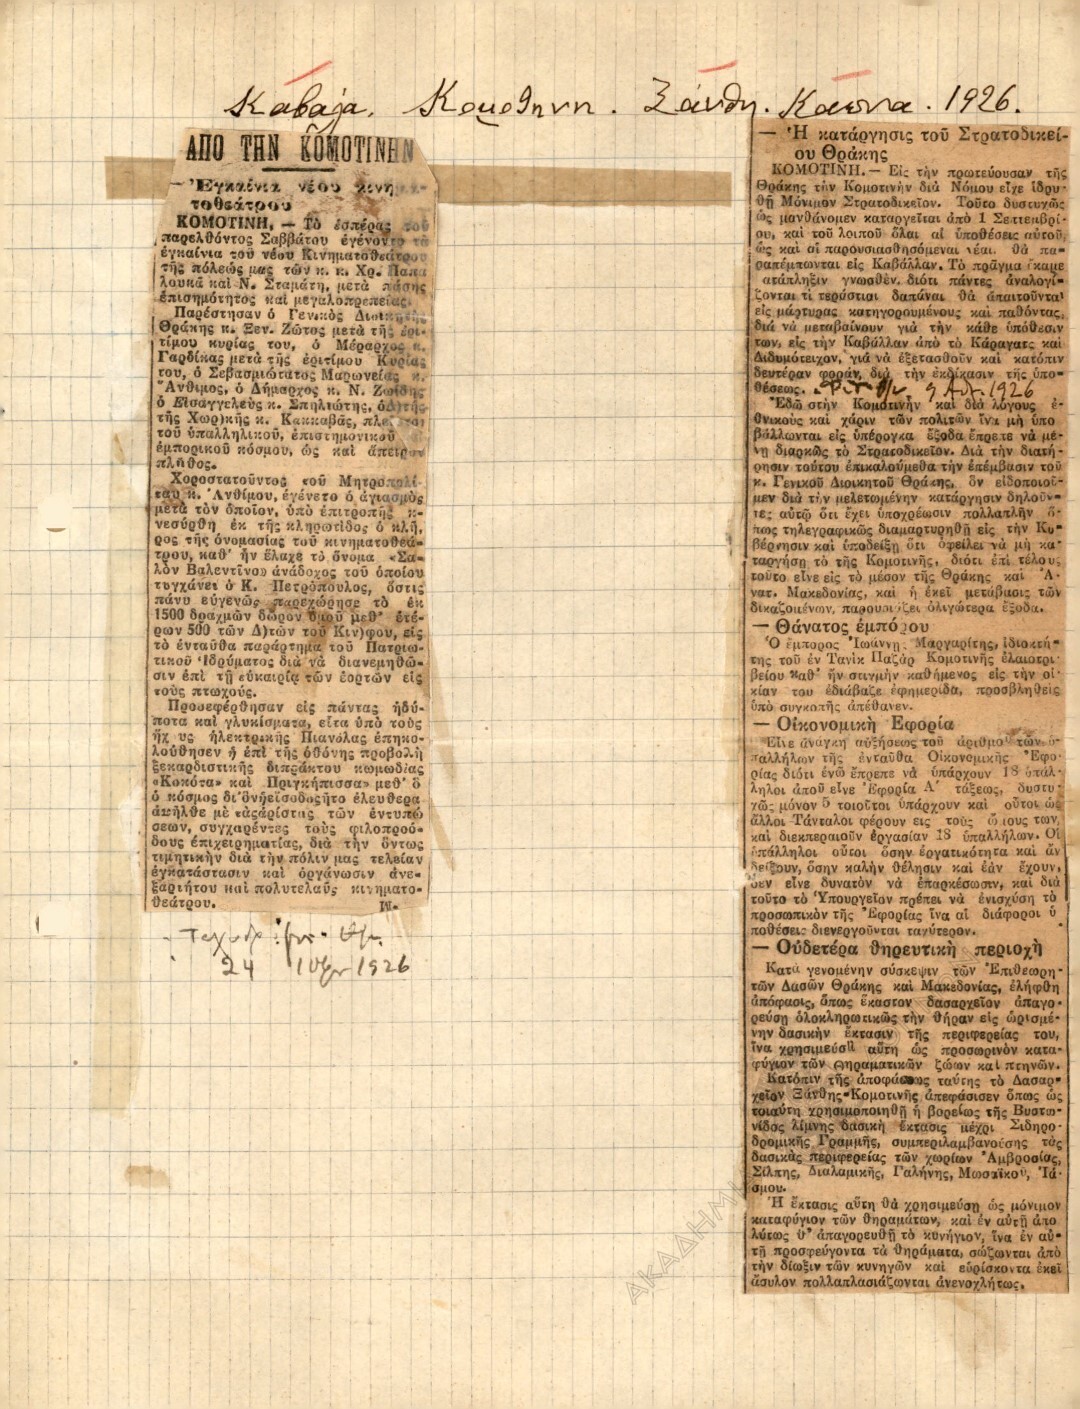 Καβάλα. Κομοτηνη. Ξάνθη. Καπνα. 1926.
ΑΠΟ ΤΗΝ ΚΟΜΟΤΙΝΗΝ
— Ἐγκαίνια νέου κινη
τοθεάτρου
ΚΟΜΟΤΙΝΗ. — Τὸ ἑσπέρας τοῦ
παρελθόντος Σαββάτου ἐγένοντο τὰ
ἐγκαίνια τοῦ νέου Κινηματοθεάτρου
τῆς πόλεώς μας τῶν κ. κ. Χρ. Παπα
λουκᾶ καὶ Ν. Σταμάτη, μετὰ πάσης
ἐπισημότητος καὶ μεγαλοπρεπείας.
Παρέστησαν ὁ Γενικὸς Διοικητὴς
Θράκης κ. Ξεν. Ζῶτος μετὰ τῆς ἐρι
τίμου κυρίας του, ὁ Μέραρχος κ.
Γαρδίκας μετὰ τῆς ἐριτίμου Κυρίας
του, ὁ Σεβασμιώτατος Μαρωνείας κ.
Ἄνθιμος, ὁ Δήμαρχος κ. Ν. Ζωΐδης
ὁ Εἰσαγγελεὺς κ. Σπηλιώτης, ὁ Δ)τὴς
τῆς Χωρ)κῆς κ. Κακκαβᾶς,
τοῦ ὑπαλληλικοῦ, ἐπιστημονικοῦ
ἐμπορικοῦ κόσμου, ὡς καὶ ἄπειρον
πλῆθος.
Χοροστατοῦντος τοῦ Μητροπολί
του κ. Ἀνθίμου, ἐγένετο ὁ ἁγιασμὸς
μετὰ τὸν ὁποῖον, ὑπὸ ἐπιτροπῆς ἀ-
νεσύρθη ἐκ τῆς κληρωτίδος ὁ κλῆ.
ρος τῆς ὀνομασίας τοῦ κινηματοθεά-
τρου, καθ' ἣν ἔλαχε τὸ ὄνομα «Σα-
λὸν Βαλεντῖνο» ἀνάδοχος τοῦ ὁποίου
τυγχάνει ὁ Κ. Πετρόπουλος, ὅστις
πάνυ εὐγενῶς παρεχώρησε τὸ ἐκ
1500 δραχμῶν δῶρον ὁμοῦ μεθ' ἑτέ-
ρων 500 τῶν Δ)τῶν τοῦ Κιν)φου, εἰς
τὸ ἐνταῦθα παράρτημα τοῦ Πατριω-
τικοῦ Ἱδρύματος διὰ νὰ διανεμηθῶ-
σιν ἐπὶ τῇ εὐκαιρίᾳ τῶν ἑορτῶν εἰς
τοὺς πτωχούς.
Προσεφέρθησαν εἰς πάντας ἡδύ-
ποτα καὶ γλυκίσματα, εἶτα ὑπὸ τοὺς
ἤχους ἠλεκτρικῆς Πιανόλας ἐπηκο-
λούθησεν ἡ ἐπὶ τῆς ὀθόνης προβολὴ
ξεκαρδιστικῆς διπράκτου κωμωδίας
«Κοκότα» καὶ Πριγκήπισσα» μεθ' ὃ
ὁ κόσμος δι' ὃν ἡ εἴσοδος ἦτο ἐλευθερα
ἀπῆλθε μὲ τὰς ἀρίστας τῶν ἐντυπώ
σεων, συγχαρέντες τοὺς φιλοπροό-
δους ἐπιχειρηματίας, διὰ τὴν ὄντως
τιμητικὴν διὰ τὴν πόλιν μας τελείαν
ἐγκατάστασιν καὶ ὀργάνωσιν ἀνε-
ξαρτήτου καὶ πολυτελοῦς κινηματο-
θεάτρου.
24 1926
— Ἡ κατάργησις τοῦ Στρατοδικεί-
ου Θράκης
ΚΟΜΟΤΙΝΗ. — Εἰς τὴν πρωτεύουσαν τῆς
Θράκης τὴν Κομοτινὴν διὰ Νόμου εἶχε ἱδρυ-
θῇ Μόνιμον Στρατοδικεῖον. Τοῦτο δυστυχῶς
ὡς μανθάνομεν καταργεῖται ἀπὸ 1 Σεπτεμβρί-
ου, καὶ τοῦ λοιποῦ ὅλαι αἱ ὑποθέσεις αὐτοῦ,
ὡς καὶ αἱ παρουσιασθησόμεναι νέαι θὰ πα-
ραπέμπωνται εἰς Καβάλλαν. Τὸ πρᾶγμα ἔκαμε
κατάπληξιν γνωσθέν, διότι πάντες ἀναλογί-
ζονται τί τεράστιαι δαπάναι θὰ ἀπαιτοῦνται
εἰς μάρτυρας κατηγορουμένους καὶ παθόντας,
διὰ νὰ μεταβαίνουν γιὰ τὴν κάθε ὑπόθεσιν
των, εἰς τὴν Καβάλλαν ἀπὸ τὸ Κάραγατς καὶ
Διδυμότειχον, γιὰ νὰ ἐξετασθοῦν καὶ κατόπιν
δευτέραν φοράν, διὰ τὴν ἐκδίκασιν τῆς ὑπο-
θέσεως. 9 Αὐγ. 1926
Ἐδῶ στὴν Κομοτινὴν καὶ διὰ λόγους ἐ-
θνικοὺς καὶ χάριν τῶν πολιτῶν ἵνα μὴ ὑπο
βάλλωνται εἰς ὑπέρογκα ἔξοδα ἔπρεπε νὰ μέ-
νῃ διαρκῶς τὸ Στρατοδικεῖον. Διὰ τὴν διατή-
ρησιν τούτου ἐπικαλούμεθα τὴν ἐπέμβασιν τοῦ
κ. Γενικοῦ Διοικητοῦ Θράκης, ὃν εἰδοποιοῦ-
μεν διὰ τὴν μελετωμένην κατάργησιν δηλοῦν-
τες αὐτῷ ὅτι ἔχει ὑποχρέωσιν πολλαπλῆν ὅ-
πως τηλεγραφικῶς διαμαρτυρηθῇ εἰς τὴν Κυ-
βέρνησιν καὶ ὑποδείξῃ ὅτι ὀφείλει νὰ μὴ κα-
ταργήσῃ τὸ τῆς Κομοτινῆς, διότι ἐπὶ τέλους
τοῦτο εἶνε εἰς τὸ μέσον τῆς Θράκης καὶ Ἀ-
νατ. Μακεδονίας, καὶ ἡ ἐκεῖ μετάβασις τῶν
δικαζομένων, παρουσιάζει ὀλιγώτερα ἔξοδα.
— Θάνατος ἐμπόρου
Ὁ ἔμπορος Ἰωάννης Μαργαρίτης, ἰδιοκτή-
της τοῦ ἐν Τανὶκ Παζὰρ Κομοτινῆς ἐλαιοτρι-
βείου καθ' ἣν στιγμὴν καθήμενος εἰς τὴν οἰ-
κίαν του ἐδιάβαζε ἐφημερίδα, προσβληθεὶς
ὑπὸ συγκοπῆς ἀπέθανεν.
— Οἰκονομικὴ Ἐφορία
Εἶνε ἀνάγκη αὐξήσεως τοῦ ἀριθμοῦ τῶν ὑ-
παλλήλων τῆς ἐνταῦθα Οἰκονομικῆς Ἐφο-
ρίας διότι ἐνῶ ἔπρεπε νὰ ὑπάρχουν 18 ὑπάλ-
ληλοι ἀποῦ εἶνε Ἐφορία Α΄ τάξεως, δυστυ-
χῶς μόνον 5 τοιοῦτοι ὑπάρχουν καὶ οὗτοι ὡς
ἄλλοι Τάνταλοι φέρουν εἰς τοὺς ὤμους των,
καὶ διεκπεραιοῦν ἐργασίαν 18 ὑπαλλήλων. Οἱ
ὑπάλληλοι οὗτοι ὅσην ἐργατικότητα καὶ ἂν
δείξουν, ὅσην καλὴν θέλησιν καὶ ἐὰν ἔχουν,
δὲν εἶνε δυνατὸν νὰ ἐπαρκέσωσιν, καὶ διὰ
τοῦτο τὸ Ὑπουργεῖον πρέπει νὰ ἐνισχύσῃ τὸ
προσωπικὸν τῆς Ἐφορίας ἵνα αἱ διάφοροι ὑ
ποθέσεις διενεργοῦνται ταχύτερον.
— Οὐδετέρα θηρευτικὴ περιοχὴ
Κατὰ γενομένην σύσκεψιν τῶν Ἐπιθεωρη-
τῶν Δασῶν Θράκης καὶ Μακεδονίας, ἐλήφθη
ἀπόφασις, ὅπως ἕκαστον δασαρχεῖον ἀπαγο-
ρεύσῃ ὁλοκληρωτικῶς τὴν θήραν εἰς ὡρισμέ-
νην δασικὴν ἔκτασιν τῆς περιφερείας του,
ἵνα χρησιμεύσῃ αὕτη ὡς προσωρινὸν κατα-
φύγιον τῶν θηραματικῶν ζώων καὶ πτηνῶν.
Κατόπιν τῆς ἀποφάσεως ταύτης τὸ Δασαρ-
χεῖον Ξάνθης-Κομοτινῆς ἀπεφάσισεν ὅπως ὡς
τοιαύτη χρησιμοποιηθῇ ἡ βορείως τῆς Βιστω-
νίδος λίμνης δασικὴ ἔκτασις μέχρι Σιδηρο-
δρομικῆς Γραμμῆς, συμπεριλαμβανούσης τὰς
δασικὰς περιφερείας τῶν χωρίων Ἀμβροσίας,
Σίλπης, Διαλαμικῆς, Γαλήνης, Μωσαϊκοῦ, Ἰά-
σμου.
Ἡ ἔκτασις αὕτη θὰ χρησιμεύσῃ ὡς μόνιμον
καταφύγιον τῶν θηραμάτων, καὶ ἐν αὐτῇ ἀπο
λύτως θ' ἀπαγορευθῇ τὸ κυνήγιον, ἵνα ἐν αὐ-
τῇ προσφεύγοντα τὰ θηράματα, σώζωνται ἀπὸ
τὴν δίωξιν τῶν κυνηγῶν καὶ εὑρίσκοντα ἐκεῖ
ἄσυλον πολλαπλασιάζωνται ἀνενοχλήτως.